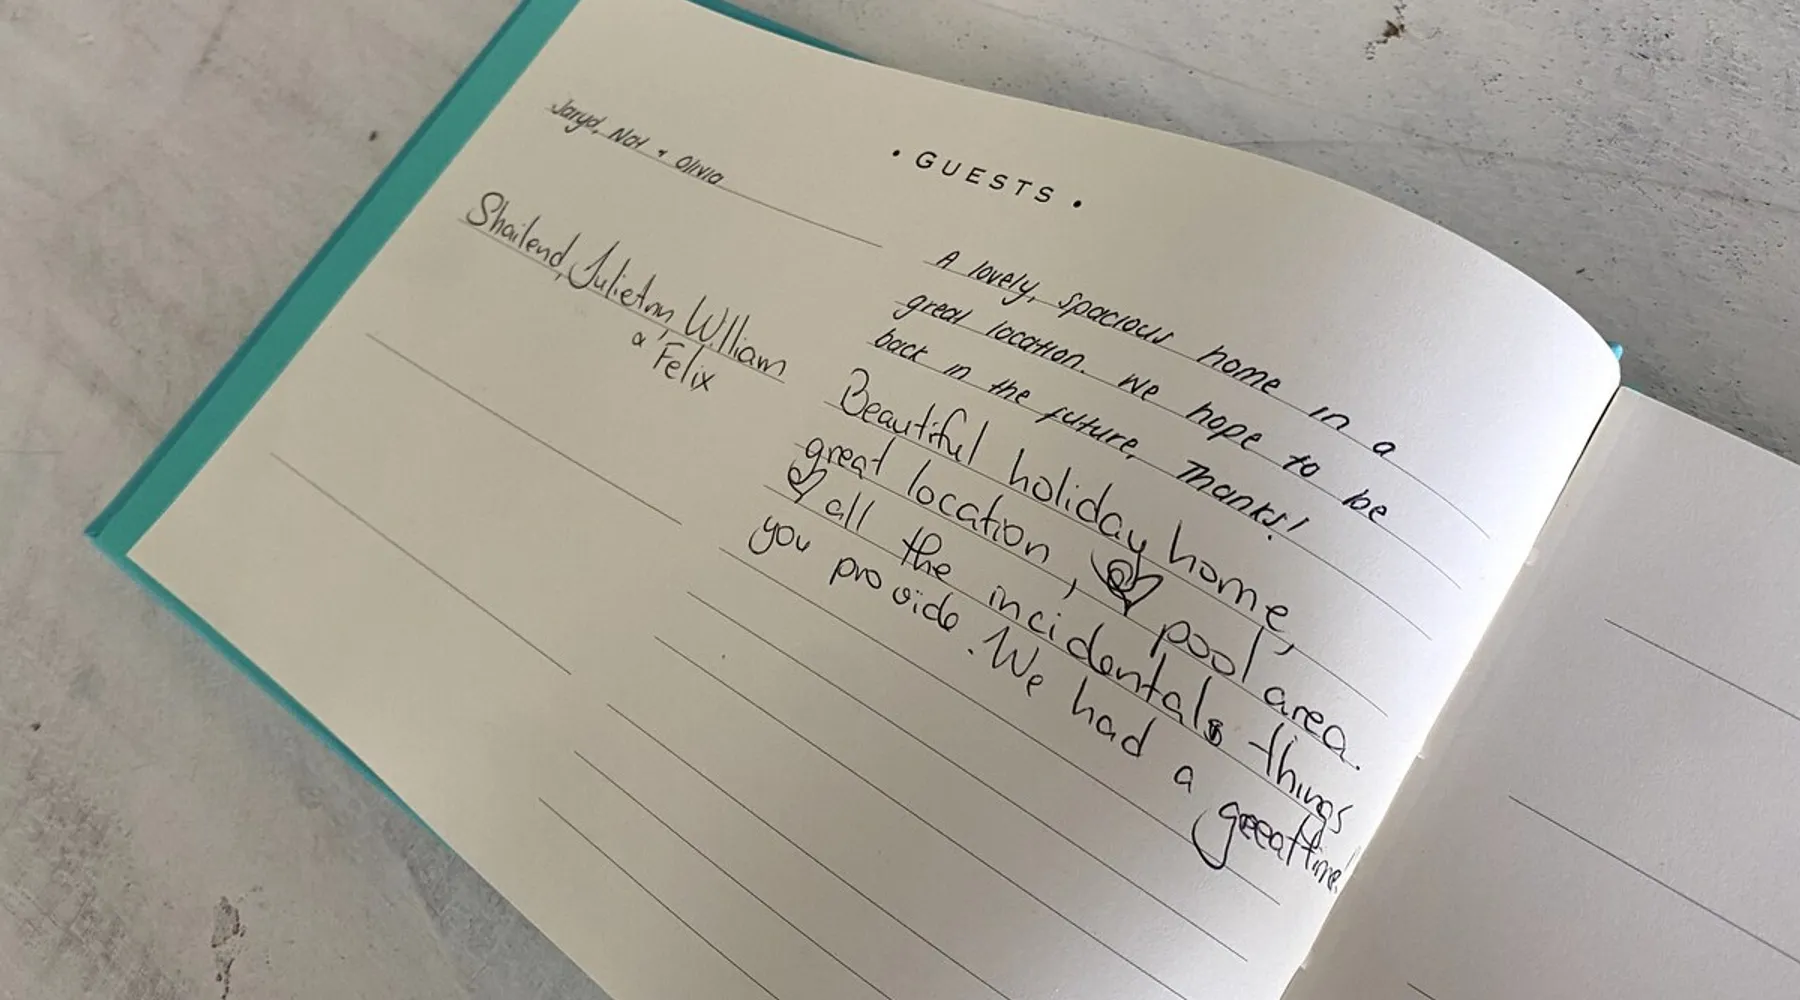 • GUESTS •
Jaryd, Nat + Olivia
A lovely, spacious home in a
great location. We hope to be
back in the future, Thanks!
Shailend, Julietnn, William
& Felix
Beautiful holiday home,
great location, & pool area.
& all the incidentals things
you provide. We had a
greeat time!